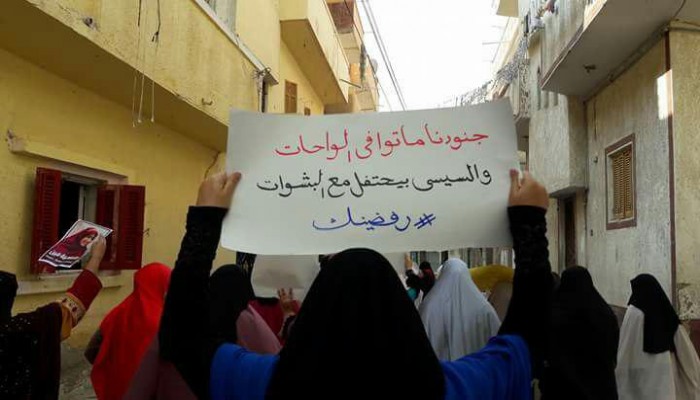 جنودنا ماتوا فى الواحات
والسيسى بيحتفل مع البشوات
#رفضينك